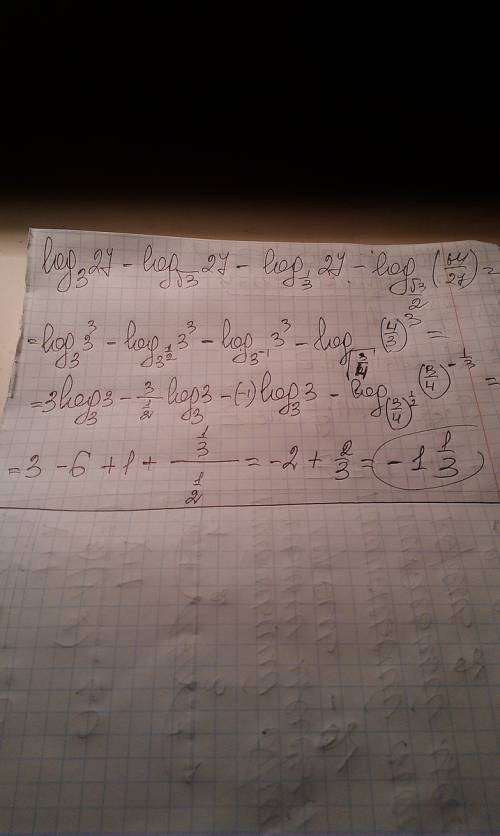 log₃27 - log_√3 27 - log_1/3 27 - log_√3 (64/27) =
= log₃3³ - log_3^(1/2) 3³ - log_3^(-1) 3³ - log_√(3/4) (4/3)³ =
= 3log₃3 - 3/(1/2) log₃3 - (-1)log₃3 - log_(3/4)^(1/2) (3/4)^(-1/3) =
= 3 - 6 + 1 + (1/3)/(1/2) = -2 + 2/3 = -1 1/3